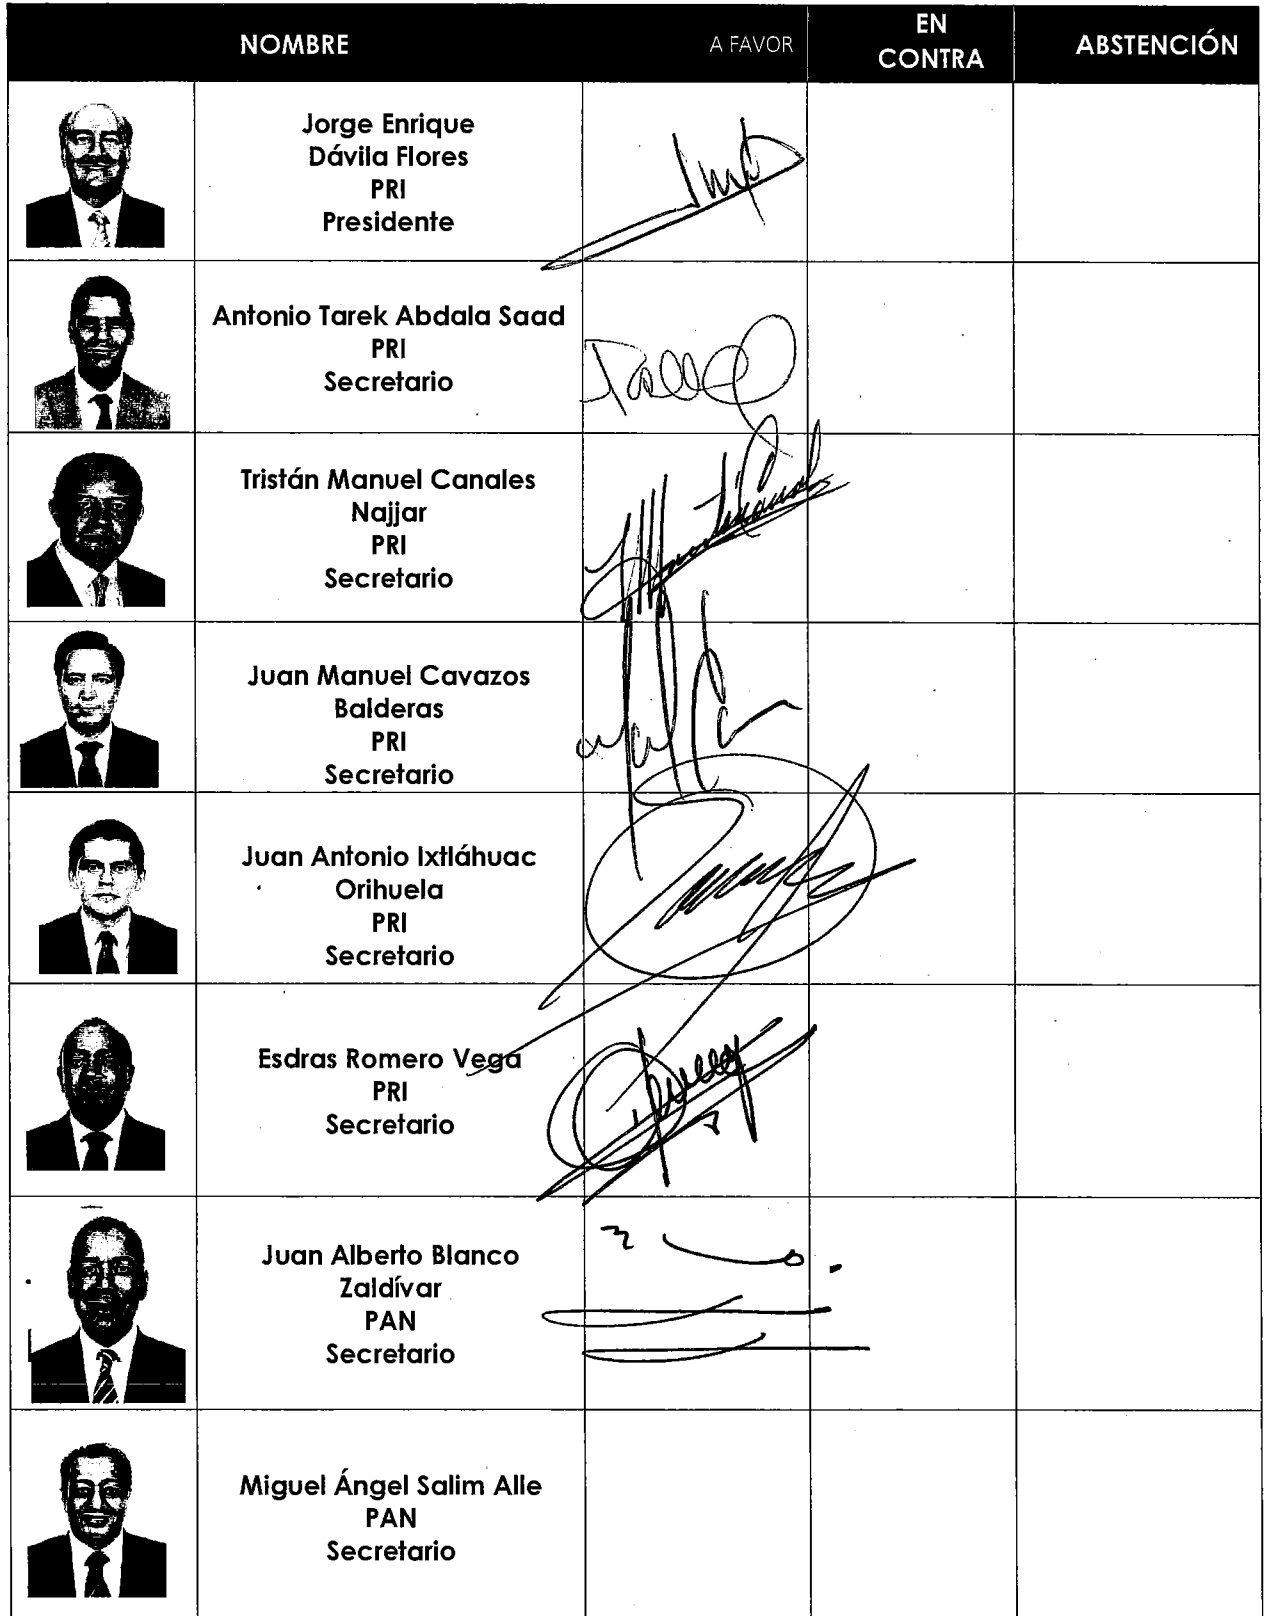 NOMBRE A FAVOR EN CONTRA ABSTENCIÓN
Jorge Enrique
Dávila Flores
PRI
Presidente
Antonio Tarek Abdala Saad
PRI
Secretario
Tristán Manuel Canales
Najjar
PRI
Secretario
Juan Manuel Cavazos
Balderas
PRI
Secretario
Juan Antonio Ixtláhuac
Orihuela
PRI
Secretario
Esdras Romero Vega
PRI
Secretario
Juan Alberto Blanco
Zaldívar
PAN
Secretario
Miguel Ángel Salim Alle
PAN
Secretario